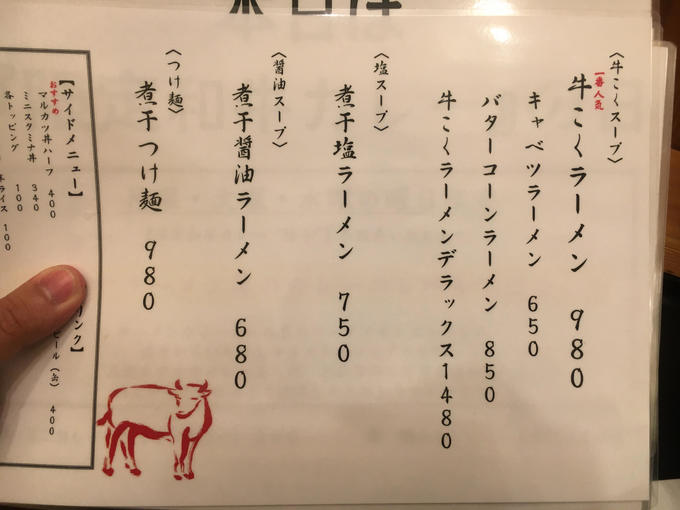 本日は
〈牛こくスープ〉
一番人気
牛こくラーメン 980
キャベツラーメン 650
バターコーンラーメン 850
牛こくラーメンデラックス1480
〈塩スープ〉
煮干塩ラーメン 750
〈醤油スープ〉
煮干醤油ラーメン 680
〈つけ麺〉
煮干つけ麺 980
【サイドメニュー】
おすすめ
マルカツ丼ハーフ 400
ミニスタミナ丼 340
各トッピング 100
ライス 100
リンク】
ビール(缶) 400